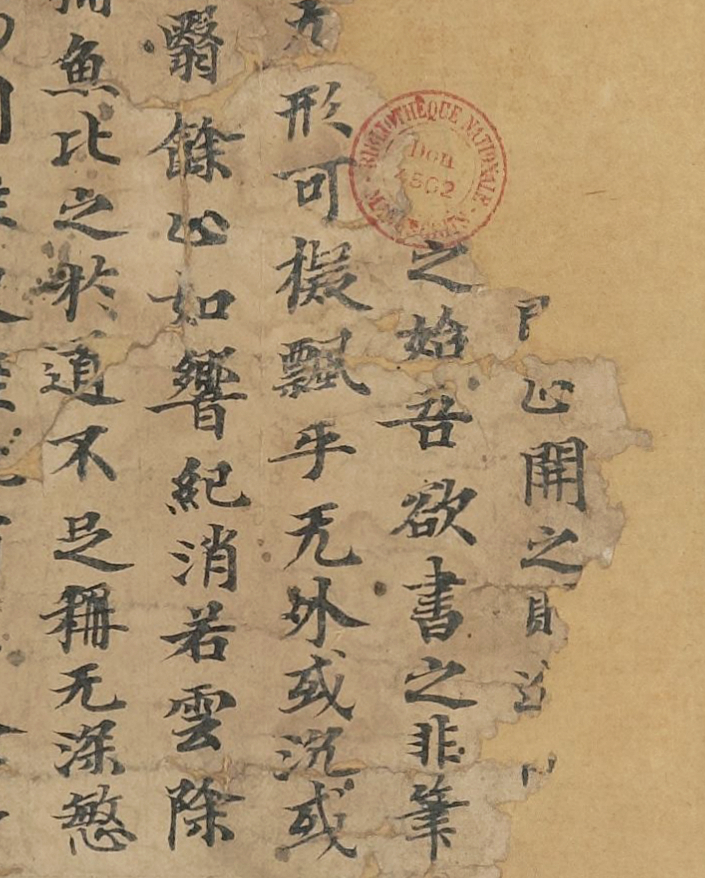 心開之
之始吾欲書之非筆
形可擬飄乎无外或沉或
翳餘心如響紀消若雲除
魚比之於道不足稱无深慜
BIBLIOTHEQUE NATIONALE
Don
4502